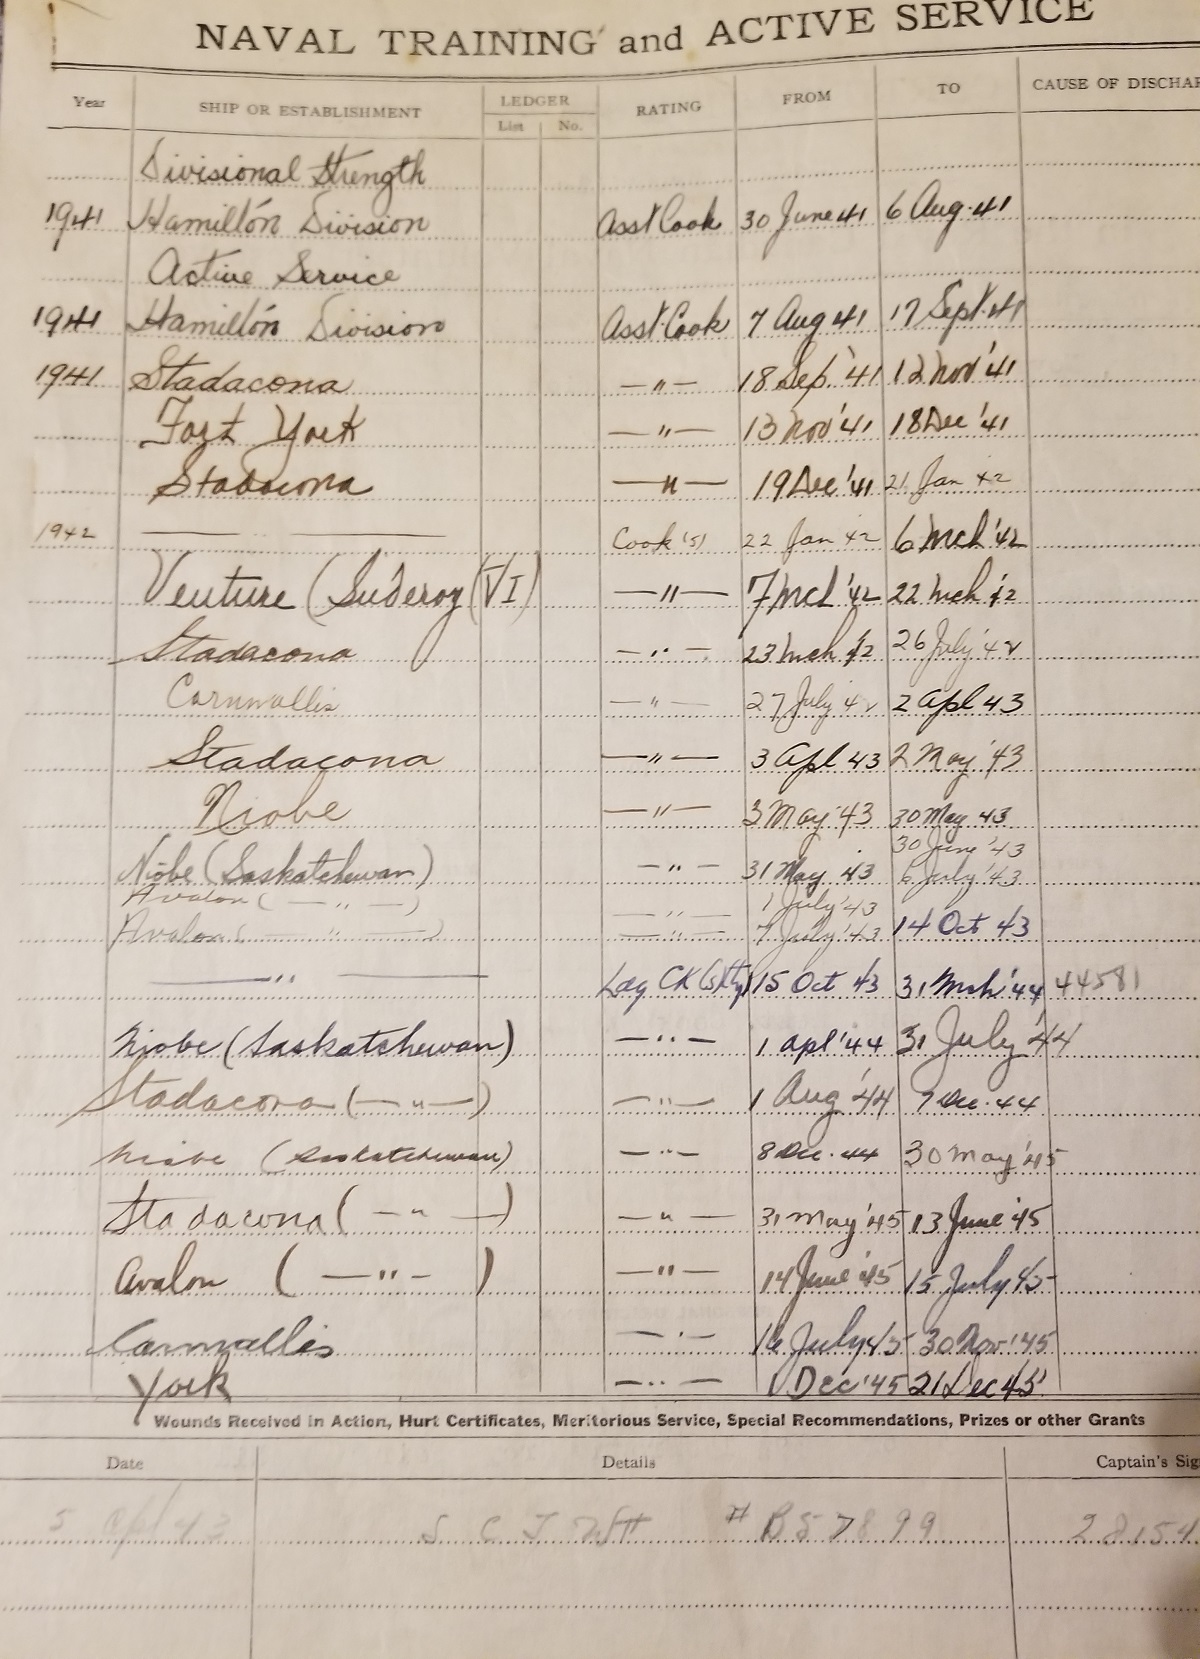 NAVAL TRAINING and ACTIVE SERVICE
Year SHIP OR ESTABLISHMENT LEDGER RATING FROM TO CAUSE OF DISCHAR
List No.
Divisional Strength
1941 Hamilton Division Asst Cook 30 June 41 6 Aug. 41
Active Service
1941 Hamilton Division Asst. Cook 7 Aug 41 17 Sept. 41
1941 Stadacona —"— 18 Sep. '41 12 Nov '41
Fort York —"— 13 Nov '41 18 Dec '41
Stadacona —"— 19 Dec '41 21 Jan 42
1942 —— " —— Cook (S) 22 Jan 42 6 Mch '42
Venture (Suderoy VI) —"— 7 Mch '42 22 Mch '42
Stadacona —"— 23 Mch '42 26 July '42
Cornwallis —"— 27 July 42 2 Apl 43
Stadacona —"— 3 Apl 43 2 May '43
Niobe —"— 3 May '43 30 May 43
30 June '43
Niobe (Saskatchewan) —"— 31 May 43 6 July '43
Avalon ( —"— ) —"— 1 July '43
Avalon ( —"— ) —"— 7 July '43 14 Oct 43
—"— Ldg CK 15 Oct 43 31 Mch '44 44581
Niobe (Saskatchewan) —"— 1 Apl '44 31 July '44
Stadacona ( —"— ) —"— 1 Aug '44 7 Dec. 44
Niobe (Saskatchewan) —"— 8 Dec. 44 30 May '45
Stadacona ( —"— ) —"— 31 May '45 13 June '45
Avalon ( —"— ) —"— 14 June '45 15 July 45
Cornwallis —"— 16 July 45 30 Nov '45
York —"— 1 Dec '45 21 Dec 45
Wounds Received in Action, Hurt Certificates, Meritorious Service, Special Recommendations, Prizes or other Grants
Date Details Captain's Sig
5 Apl 43 # B57899 28154